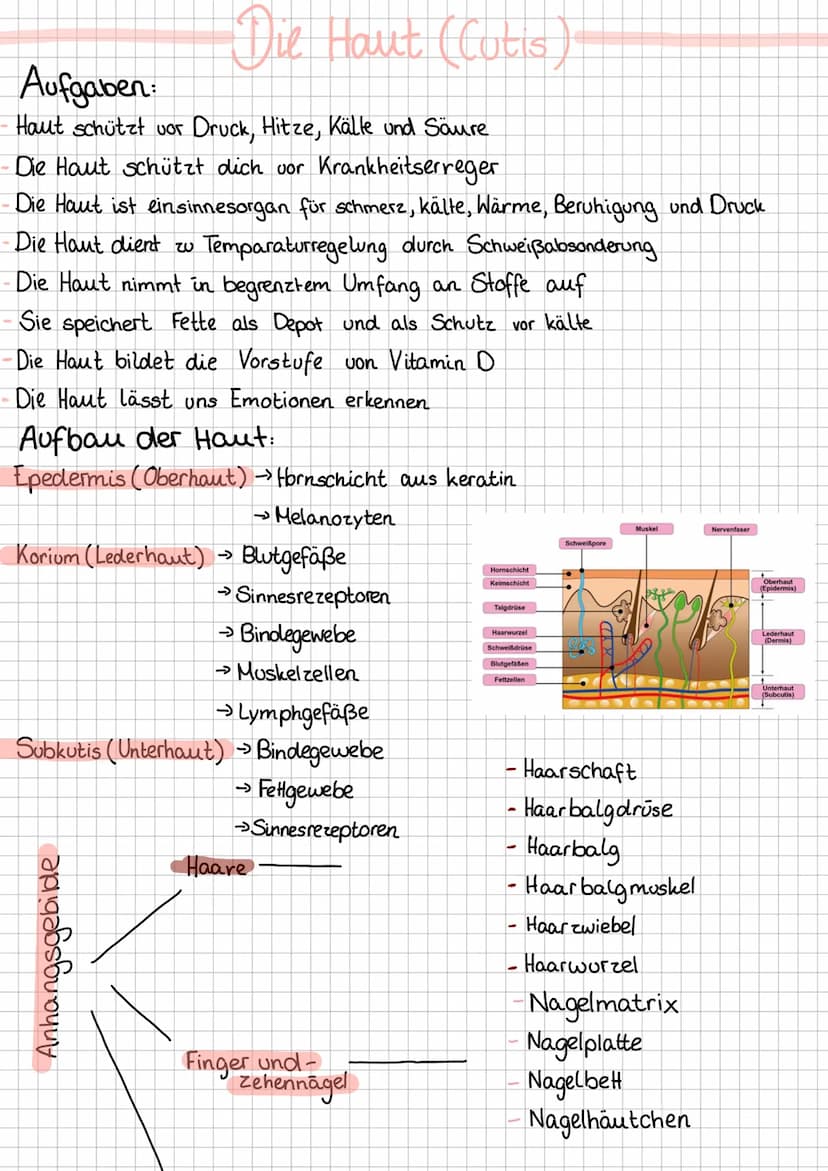 Die Haut (Cutis)
Aufgaben:
- Haut schützt vor Druck, Hitze, Kälte und Säure
- Die Haut schützt dich vor Krankheitserreger
- Die Haut ist einsinnesorgan für schmerz, kälte, Wärme, Beruhigung und Druck
- Die Haut dient zu Temparaturregelung durch Schweißabsonderung
- Die Haut nimmt in begrenztem Umfang an Stoffe auf
- Sie speichert Fette als Depot und als Schutz vor kälte
- Die Haut bildet die Vorstufe von Vitamin D
- Die Haut lässt uns Emotionen erkennen
Aufbau der Haut:
Epedermis (Oberhaut) → Hornschicht aus keratin
→ Melanozyten
Korium (Lederhaut) → Blutgefäße
→ Sinnesrezeptoren
→ Bindegewebe
→ Muskelzellen
→ Lymphgefäße
Subkutis (Unterhaut) → Bindegewebe
→ Fettgewebe
→ Sinnesrezeptoren
Schweißpore
Muskel
Nervenfaser
Hornschicht
Keimschicht
Talgdrüse
Haarwurzel
Schweißdrüse
Blutgefäßen
Fettzellen
Oberhaut
(Epidermis)
Lederhaut
(Dermis)
Unterhaut
(Subcutis)
Anhangsgebilde
Haare
- Haarschaft
- Haarbalgdrüse
- Haarbalg
- Haarbalgmuskel
- Haarzwiebel
- Haarwurzel
Finger und-
Zehennägel
- Nagelmatrix
- Nagelplatte
- Nagelbett
- Nagelhäutchen